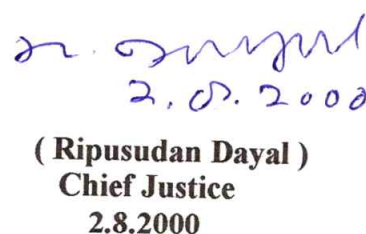 2.8.2000
( Ripusudan Dayal )
Chief Justice
2.8.2000